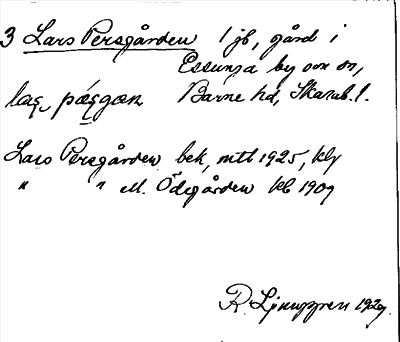 3 Lars Persgården 1 jb, gård i
Essunga by och sn,
Barne hd, Skarab. l.
Lars Persgården bek, mtl 1925,
" " ell. Ödegården kb 1909
R. Ljunggren 1929.